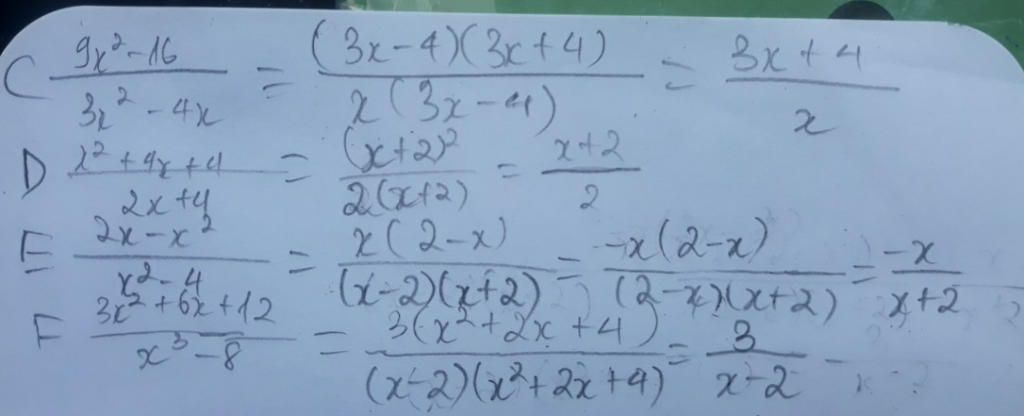 C (9x²-16)/(3x²-4x) = ((3x-4)(3x+4))/(x(3x-4)) = (3x+4)/x
D (x²+4x+4)/(2x+4) = (x+2)²/(2(x+2)) = (x+2)/2
E (2x-x²)/(x²-4) = (x(2-x))/((x-2)(x+2)) = (-x(2-x))/((2-x)(x+2)) = (-x)/(x+2)
F (3x²+6x+12)/(x³-8) = (3(x²+2x+4))/((x-2)(x²+2x+4)) = 3/(x-2)